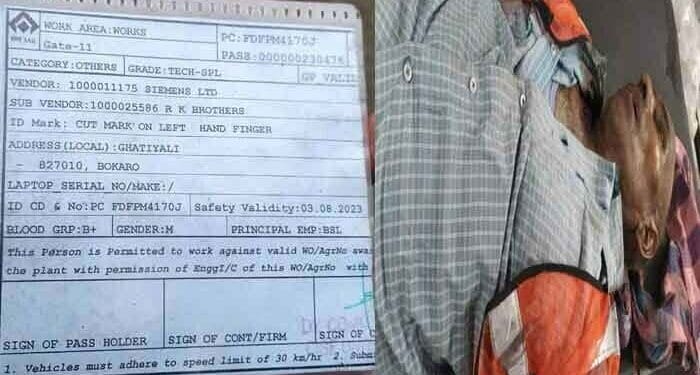 WORK AREA:WORKS
Gate-11
PC:FDFPM4170J
PASS:000000230476
CATEGORY:OTHERS GRADE:TECH-SPL GP VALI
VENDOR: 1000011175 SIEMENS LTD
SUB VENDOR:1000025586 R K BROTHERS
ID Mark: CUT MARK ON LEFT HAND FINGER
ADDRESS(LOCAL):GHATIYALI
- 827010, BOKARO
LAPTOP SERIAL NO/MAKE:/
ID CD & No:PC FDFPM4170J Safety Validity:03.08.2023
BLOOD GRP:B+ GENDER:M PRINCIPAL EMP:BSL
This Person is Permitted to work against valid WO/AgrNo awa
the plant with permission of EnggI/C of this WO/AgrNo with
SIGN OF PASS HOLDER SIGN OF CONT/FIRM SIGN OF C
1. Vehicles must adhere to speed limit of 30 km/hr 2. Subm